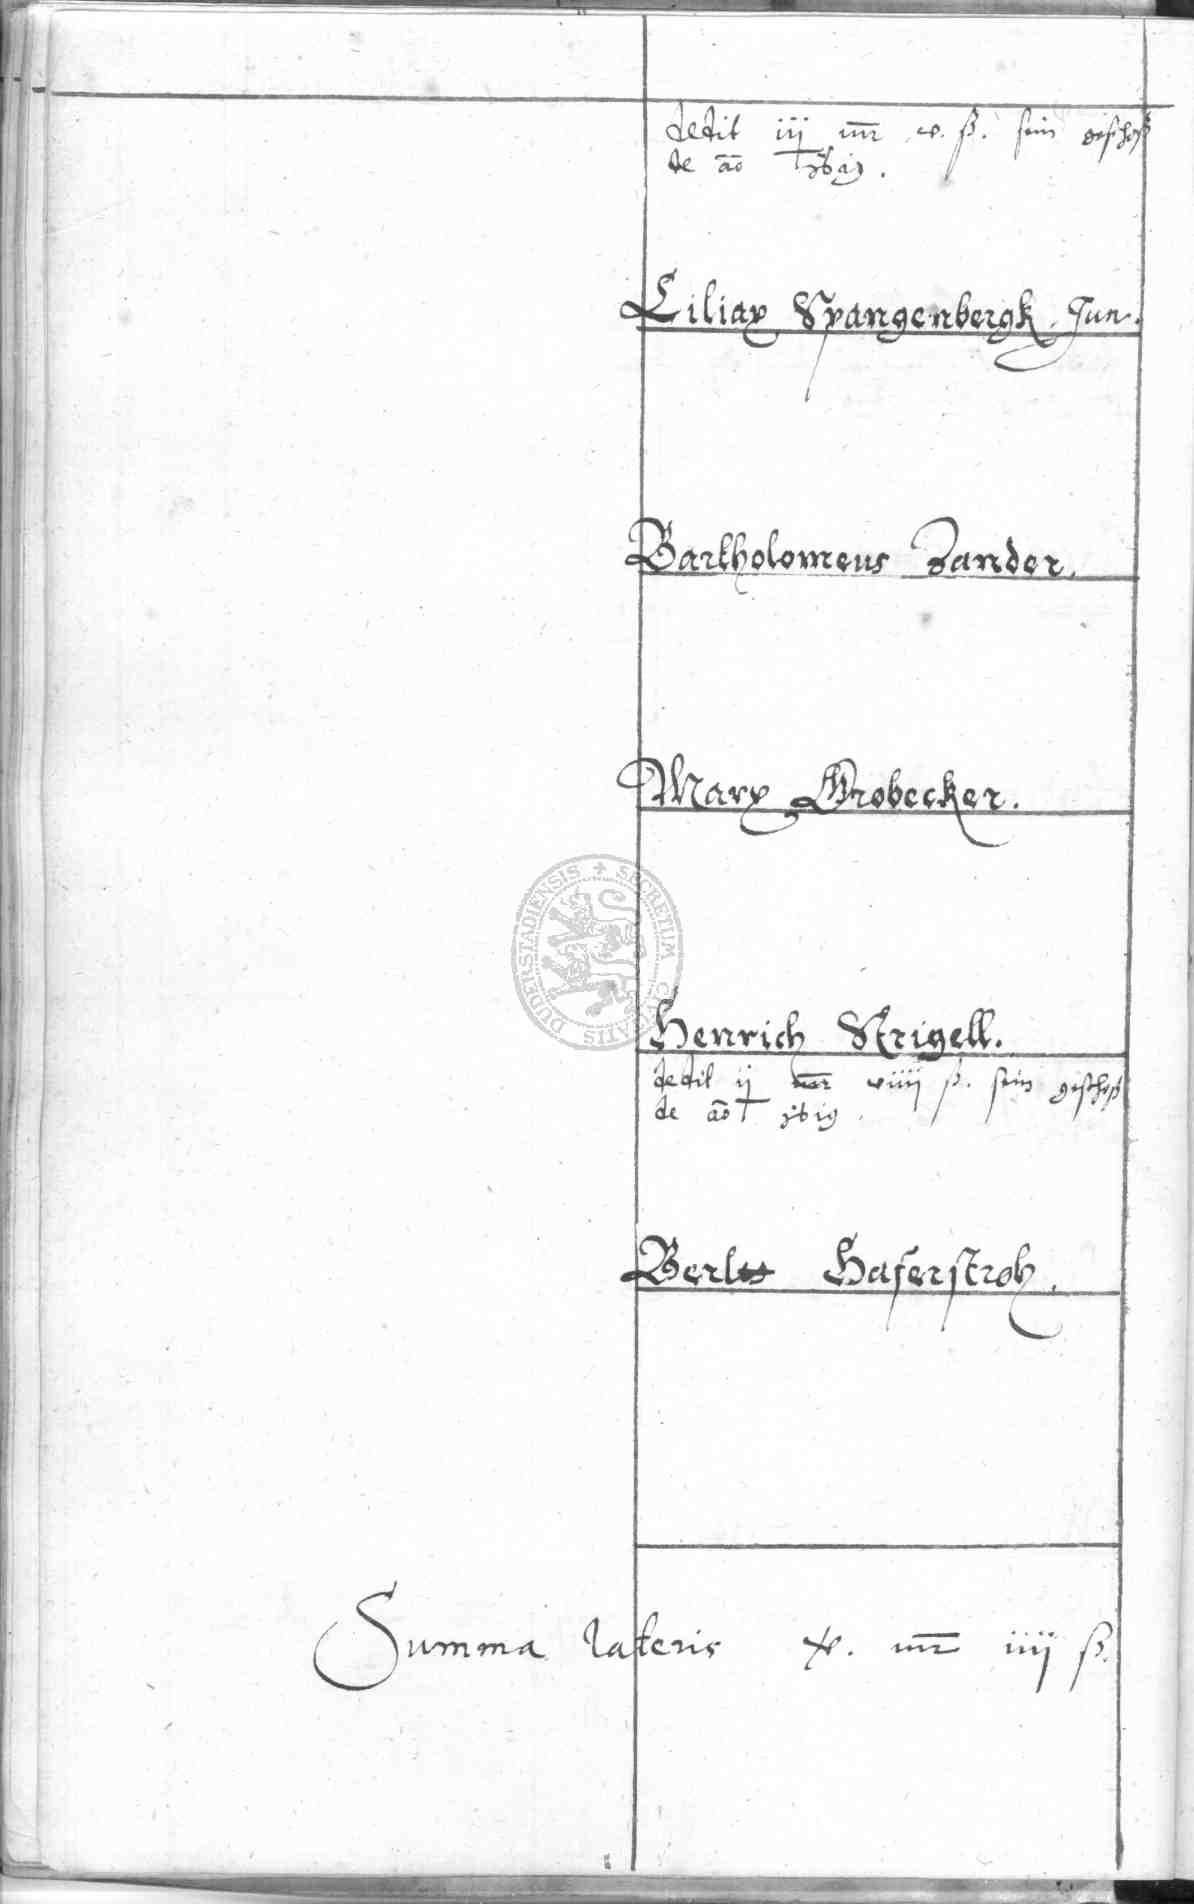 dedit iij mr v. ß. sein geschoß
de ao
Ciliax Spangenbergk Jun.
Bartholomeus Zander.
Marx Grobecker.
Henrich Strigell.
dedit ij mr viiij ß. sein geschoß
de ao
Haferstroh.
Summa lateris x. mr iiij ß.
SECRETUM CIVITATIS DUDERSTADIENSIS